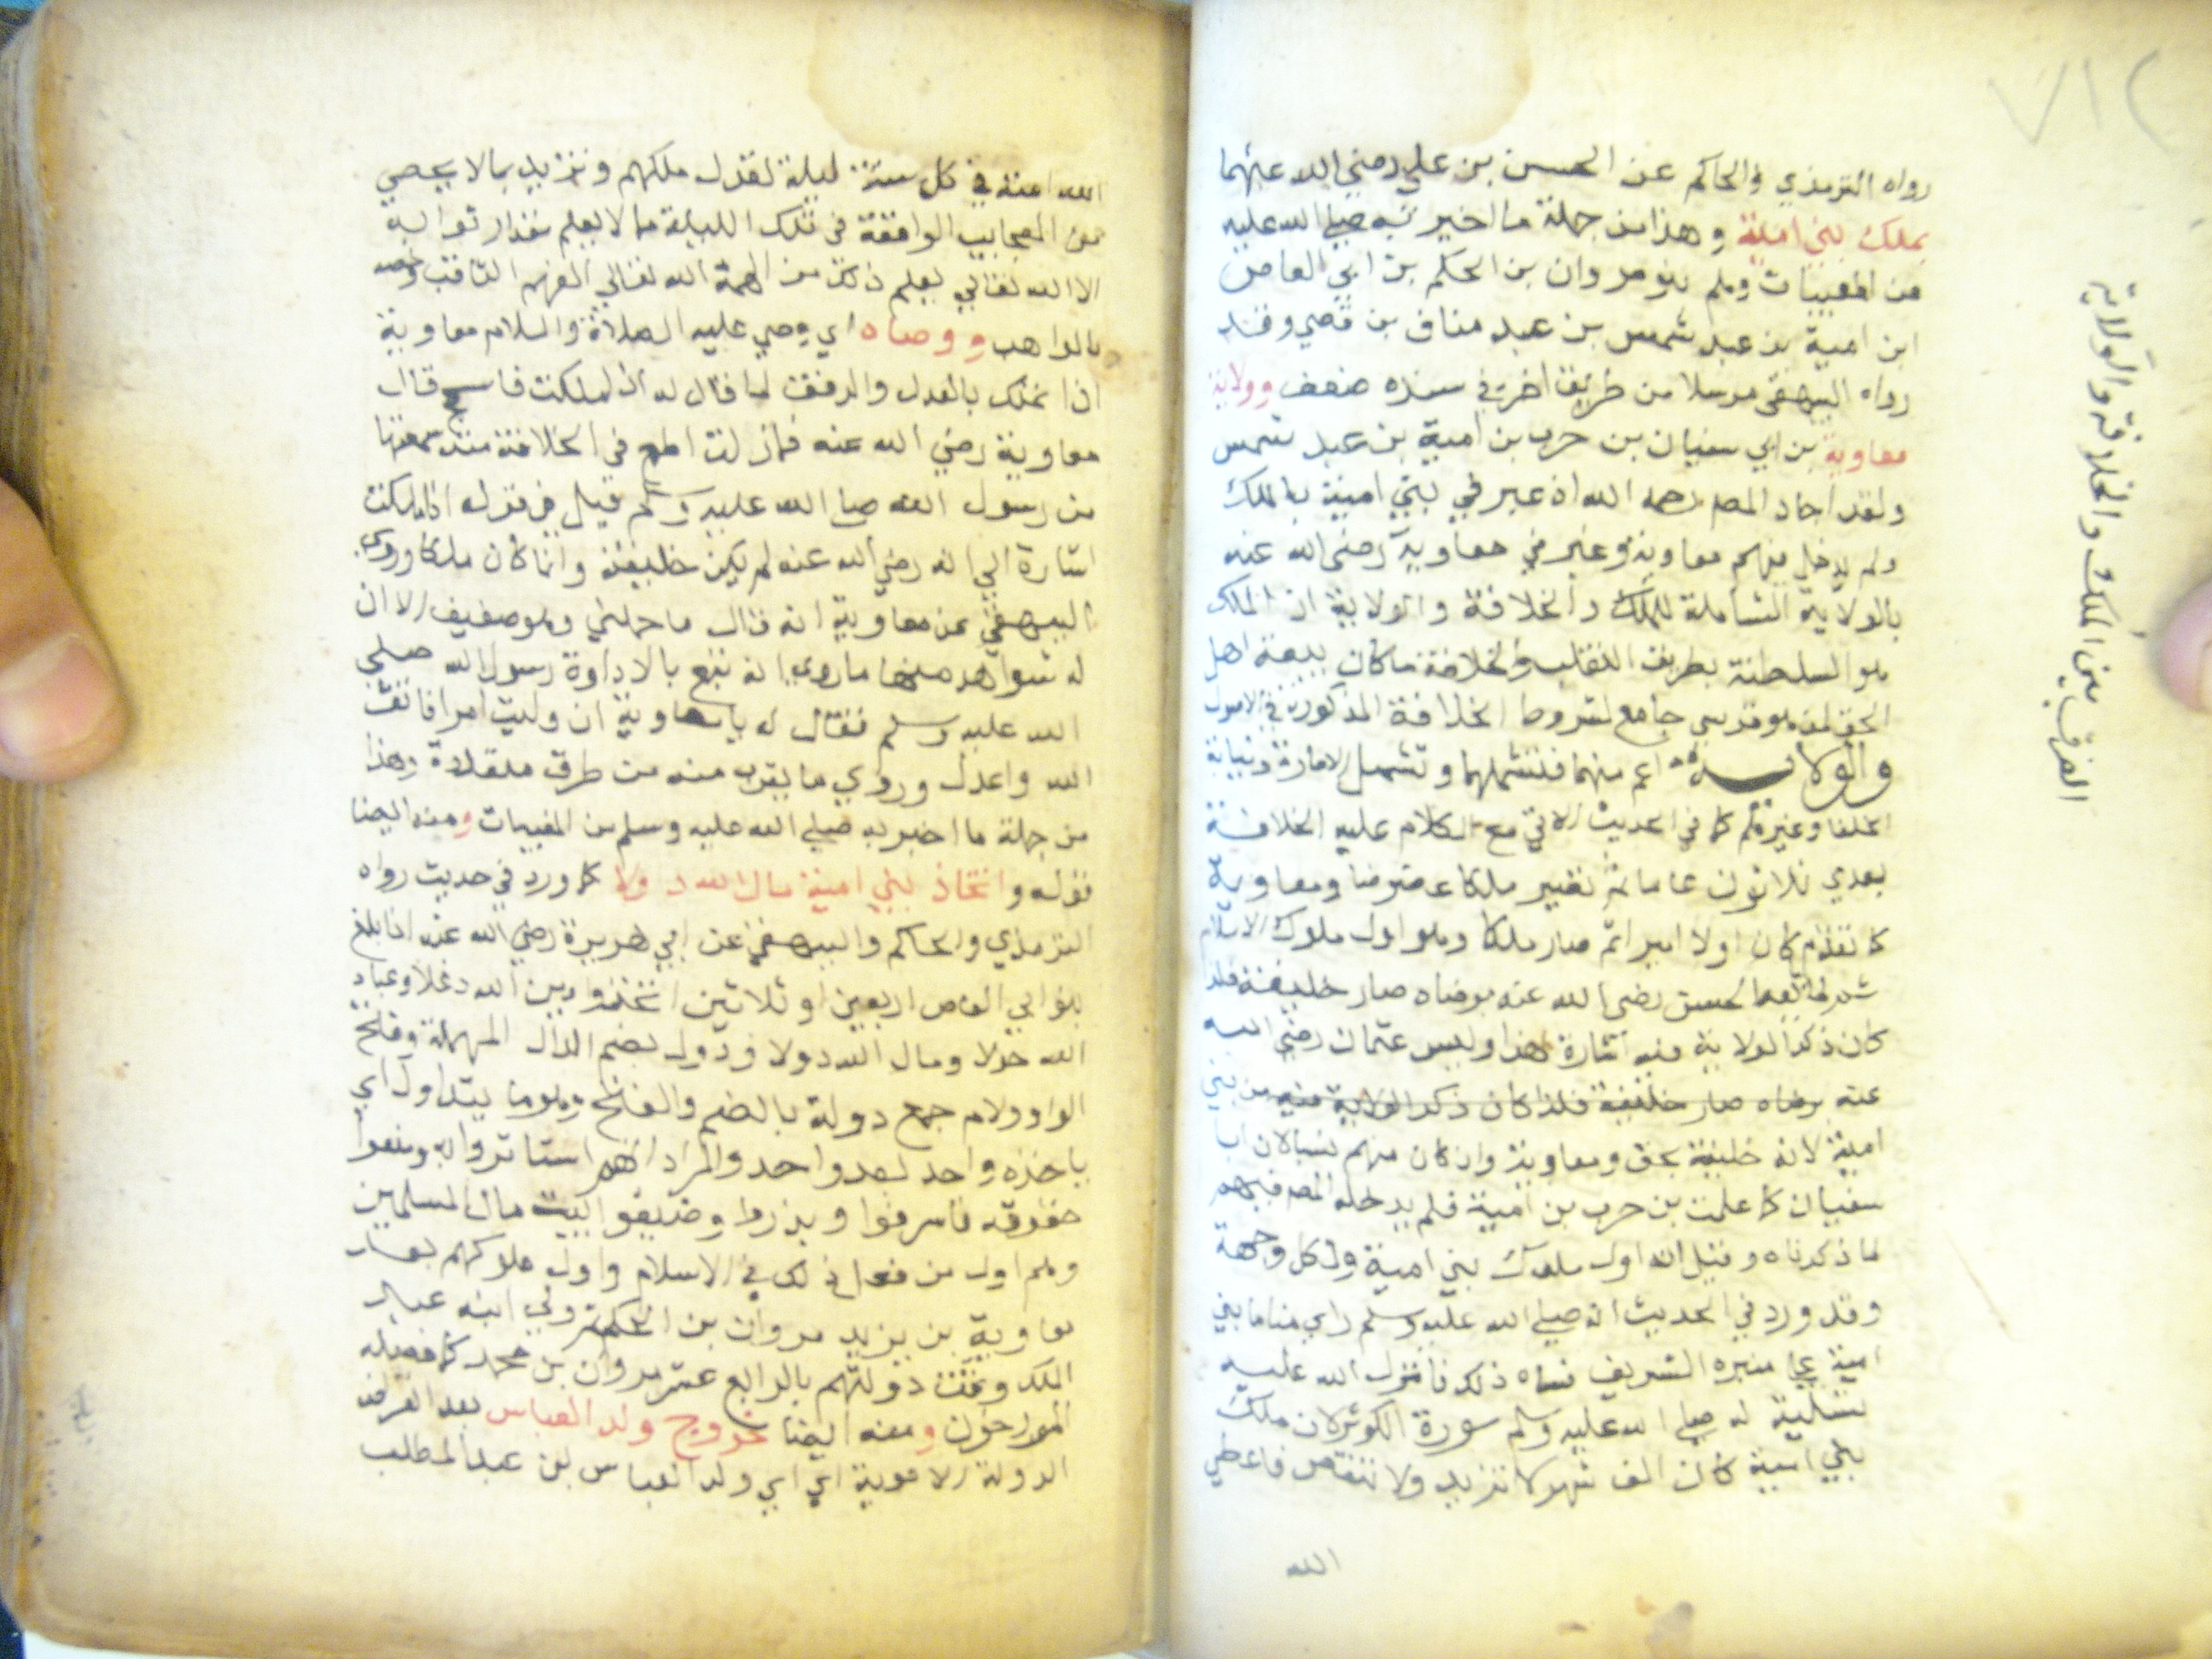 ٧١٢
الفرق بين الملك والخلافة والولاية
رواه الترمذي والحاكم عن الحسن بن علي رضي الله عنهما
بملك بني امية وهذا من جملة ما اخبر به صلى الله عليه
من المغيبات وهم بنو مروان بن الحكم بن ابي العاص
ابن امية بن عبد شمس بن عبد مناف بن قصي وقد
رواه البيهقي مرسلا من طريق اخر في سنده ضعف وولاية
معاوية بن ابي سفيان بن حرب بن امية بن عبد شمس
ولقد اجاد المصـ رحمه الله اذ عبر في بني امية بالملك
ولم يدخل فيهم معاوية وعبر في معاوية رضي الله عنه
بالولاية الشاملة للملك والخلافة والولاية ان الملك
هو السلطنة بطريق التغلب والخلافة ما كان ببيعة اهل
الحق لمن هو قرشي جامع لشروط الخلافة المذكورة في الاصول
والولاية اعم منهما فتشملهما وتشمل الامارة ونيابة
الخلفا وغيرهم كما في الحديث الاتي مع الكلام عليه الخلافة
بعدي ثلاثون عاما ثم تصير ملكا عضوضا ومعاوية
كما تقدم كان اولا اميرا ثم صار ملكا وهو اول ملوك الاسلام
ثم لما بايعه الحسن رضي الله عنه برضاه صار خليفة فلذا
كان ذكر الولاية فيه اشارة لهذا وليس عثمان رضي الله
عنه برضاه صار خليفة فلذا كان ذكر الولاية فيه من بني
امية لانه خليفة بحق ومعاوية وان كان منهم نسبا لان ابا
سفيان كما علمت بن حرب بن امية فلم يدخله المصـ فيهم
لما ذكرناه وقيل انه اول ملوك بني امية ولكل وجهة
وقد ورد في الحديث انه صلى الله عليه وسلم راي مناما بني
امية على منبره الشريف فساه ذلك فانزل الله عليه
تسلية له صلى الله عليه وسلم سورة الكوثر لان ملك
بني امية كان الف شهر لا تزيد ولا تنقص فاعطي
الله
الله امته في كل سنة ليلة تعدل ملكهم وتزيد بما لا يحصي
من العجايب الواقعة في تلك الليلة مما لا يعلم مقدار ثوابه
الا الله تعالي يعلم ذلك من الهمه الله تعالي الفهم الثاقب وخصه
بالمواهب ووصاه اي وصي عليه الصلاة والسلام معاوية
اذا تملك بالعدل والرفق لما قال له اذا ملكت فاسجح قال
معاوية رضي الله عنه فمازلت اطمع في الخلافة منذ سمعتها
من رسول الله صلى الله عليه وسلم قيل في قوله اذا ملكت
اشارة الي انه رضي الله عنه لم يكن خليفة وانما كان ملكا وروي
البيهقي عن معاوية انه قال ما حملني وهو ضعيف الا ان
له شواهد منها ماروي انه تبع بالاداوة رسول الله صلي
الله عليه وسلم فقال له يا معاوية ان وليت امرا فاتق
الله واعدل وروي ما يقرب منه من طرق متعددة وهذا
من جملة ما اخبر به صلي الله عليه وسلم من المغيبات ومنه ايضا
قوله واتخاذ بني امية مال الله دولا كما ورد في حديث رواه
الترمذي والحاكم والبيهقي عن ابي هريرة رضي الله عنه اذا بلغ
بنو ابي العاص اربعين او ثلاثين اتخذوا دين الله دغلا وعباد
الله خولا ومال الله دولا ودول بضم الدال المهملة وفتح
الواو ولام جمع دولة بالضم والفتح وهو ما يتداول اي
ياخذه واحد بعد واحد والمراد انهم استاثروا به ومنعوا
حقوقه فاسرفوا وبذروا وضيقوا بيت مال المسلمين
وهم اول من فعل ذلك في الاسلام واول ملوكهم بعد
معاوية بن يزيد مروان بن الحكم ثم ولي ابنه عبد
الملك وتمت دولتهم بالرابع عشر مروان بن محمد كما فصله
المورخون ومنه ايضا خروج ولد العباس بعد انقراض
الدولة الاموية اي ولد العباس بن عبد المطلب